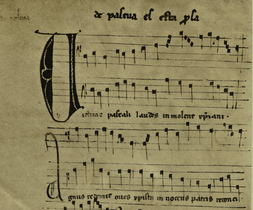 de pascua el esta psa
Victime pascali laudes immolent xpiani.
Agnus redemit oves xpistus innocens patris reconci